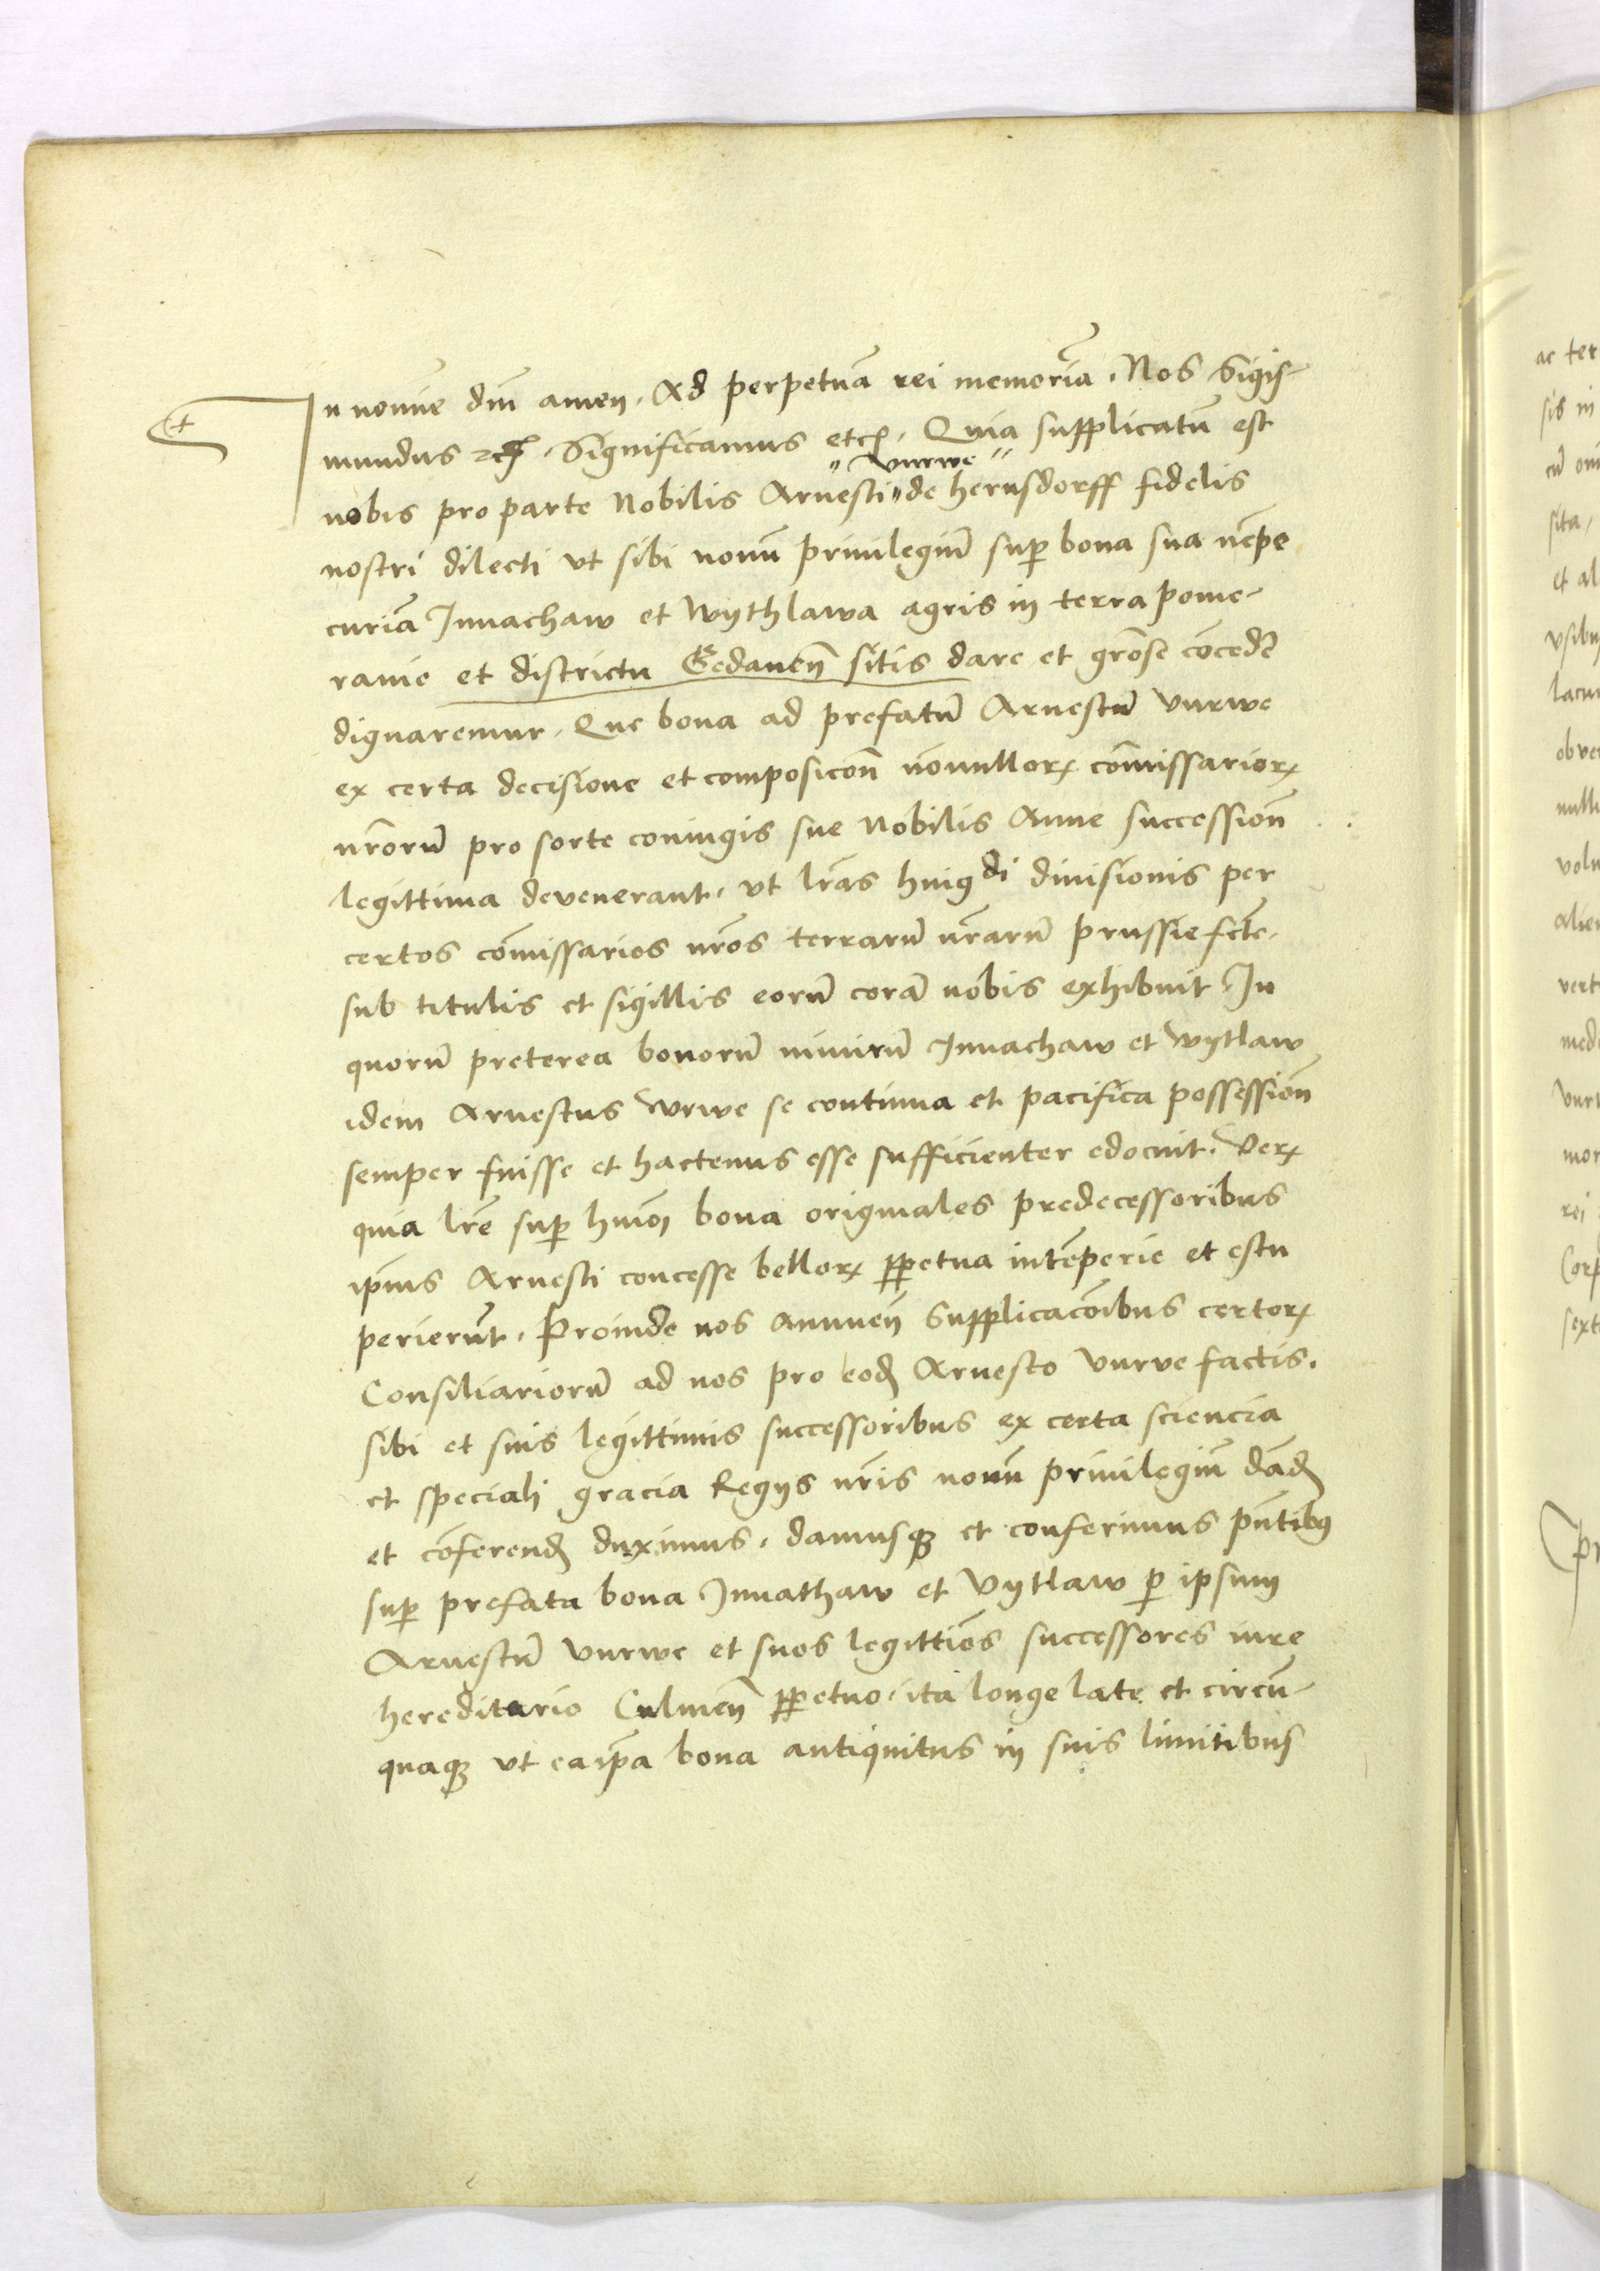 In nomīe dm̄ amen. Ad perpetuā rei memoriā. Nos Sigis-
mundus etc̄. Significamus etc̄. Quia supplicatū est
vnrwe
nobis pro parte Nobilis Arnesti de hernsdorff fidelis
nostri dilecti vt sibi nouū priuilegiū sup̄ bona sua nēpe
curiā Jnnachaw et Wythlawa agris in terra pome-
ranie et districtu Gedaneñ sitis dare et grōse cōcedē
dignaremur. Que bona ad prefatū Arnestū vnrwe
ex certa decisione et composicōn nōnullorꝝ cōmissariorꝝ
nr̄orū pro sorte coniugis sue Nobilis Anne succession̄
legittima devenerant. vt lr̄as huiꝰdi diuisionis per
certos cōmissarios nr̄os terrarū nr̄arū prussie fc̄te.
sub titulis et sigillis eorū corā nobis exhibuit In
quorū preterea bonorū nimirū Jnnachaw et wytlaw
idem Arnestus wrwe se continua et pacifica possession̄
semper fuisse et hactenus esse sufficienter edocuit. Verꝝ
quia lr̄e sup̄ hmōi bona originales predecessoribus
ip̄ius Arnesti concesse bellorꝝ ꝑpetua intēperie et estu
perierūt. Proinde nos annueñ Supplicacōnibus certorꝝ
Consiliariorū ad nos pro eod̄ Arnesto vnrve factis.
sibi et suis legittimis successoribus ex certa sciencia
et speciali gracia Regijs nr̄is nouū priuilegiū dād̄
et cōferend̄ duximus. damusqꝫ et conferimus pn̄tibꝰ
sup̄ prefata bona Jnnathaw et Vytlaw ꝑ ipsum
Arnestū vnrwe et suos legittiōs successores iure
hereditario Culmeñ ꝑpetuo. ita longe late et circū-
quaqꝫ vt ea ip̄a bona antiquitus in suis limitibus